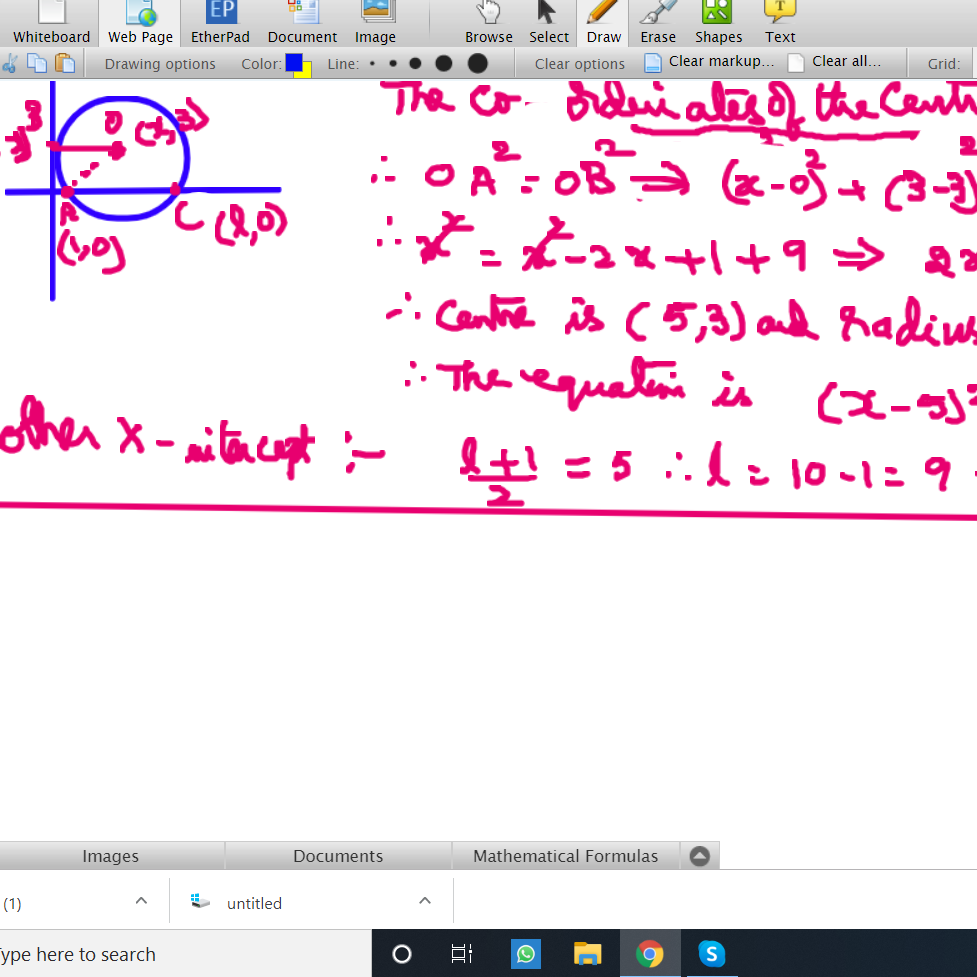 Whiteboard Web Page EtherPad Document Image Browse Select Draw Erase Shapes Text
EP
T
Drawing options Color: Line: Clear options Clear markup... Clear all... Grid:
The Co-ordinates of the Cent
3
O
(x,3)
∴ OA² = OB² ⇒ (x-0)² + (3-3)²
A
C (l,0)
(1,0)
∴ x² = x²-2x+1+9 ⇒ 2x
∴ Centre is (5,3) and radius
∴ The equation is (x-5)²
other X-intercept :- l+1/2 = 5 ∴ l = 10-1 = 9
Images Documents Mathematical Formulas
(1) untitled
ype here to search
S